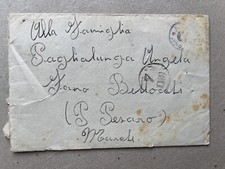 Alla Famiglia
Paghalunga Angela
Fano Bellocchi
(P Pesaro)
Marche